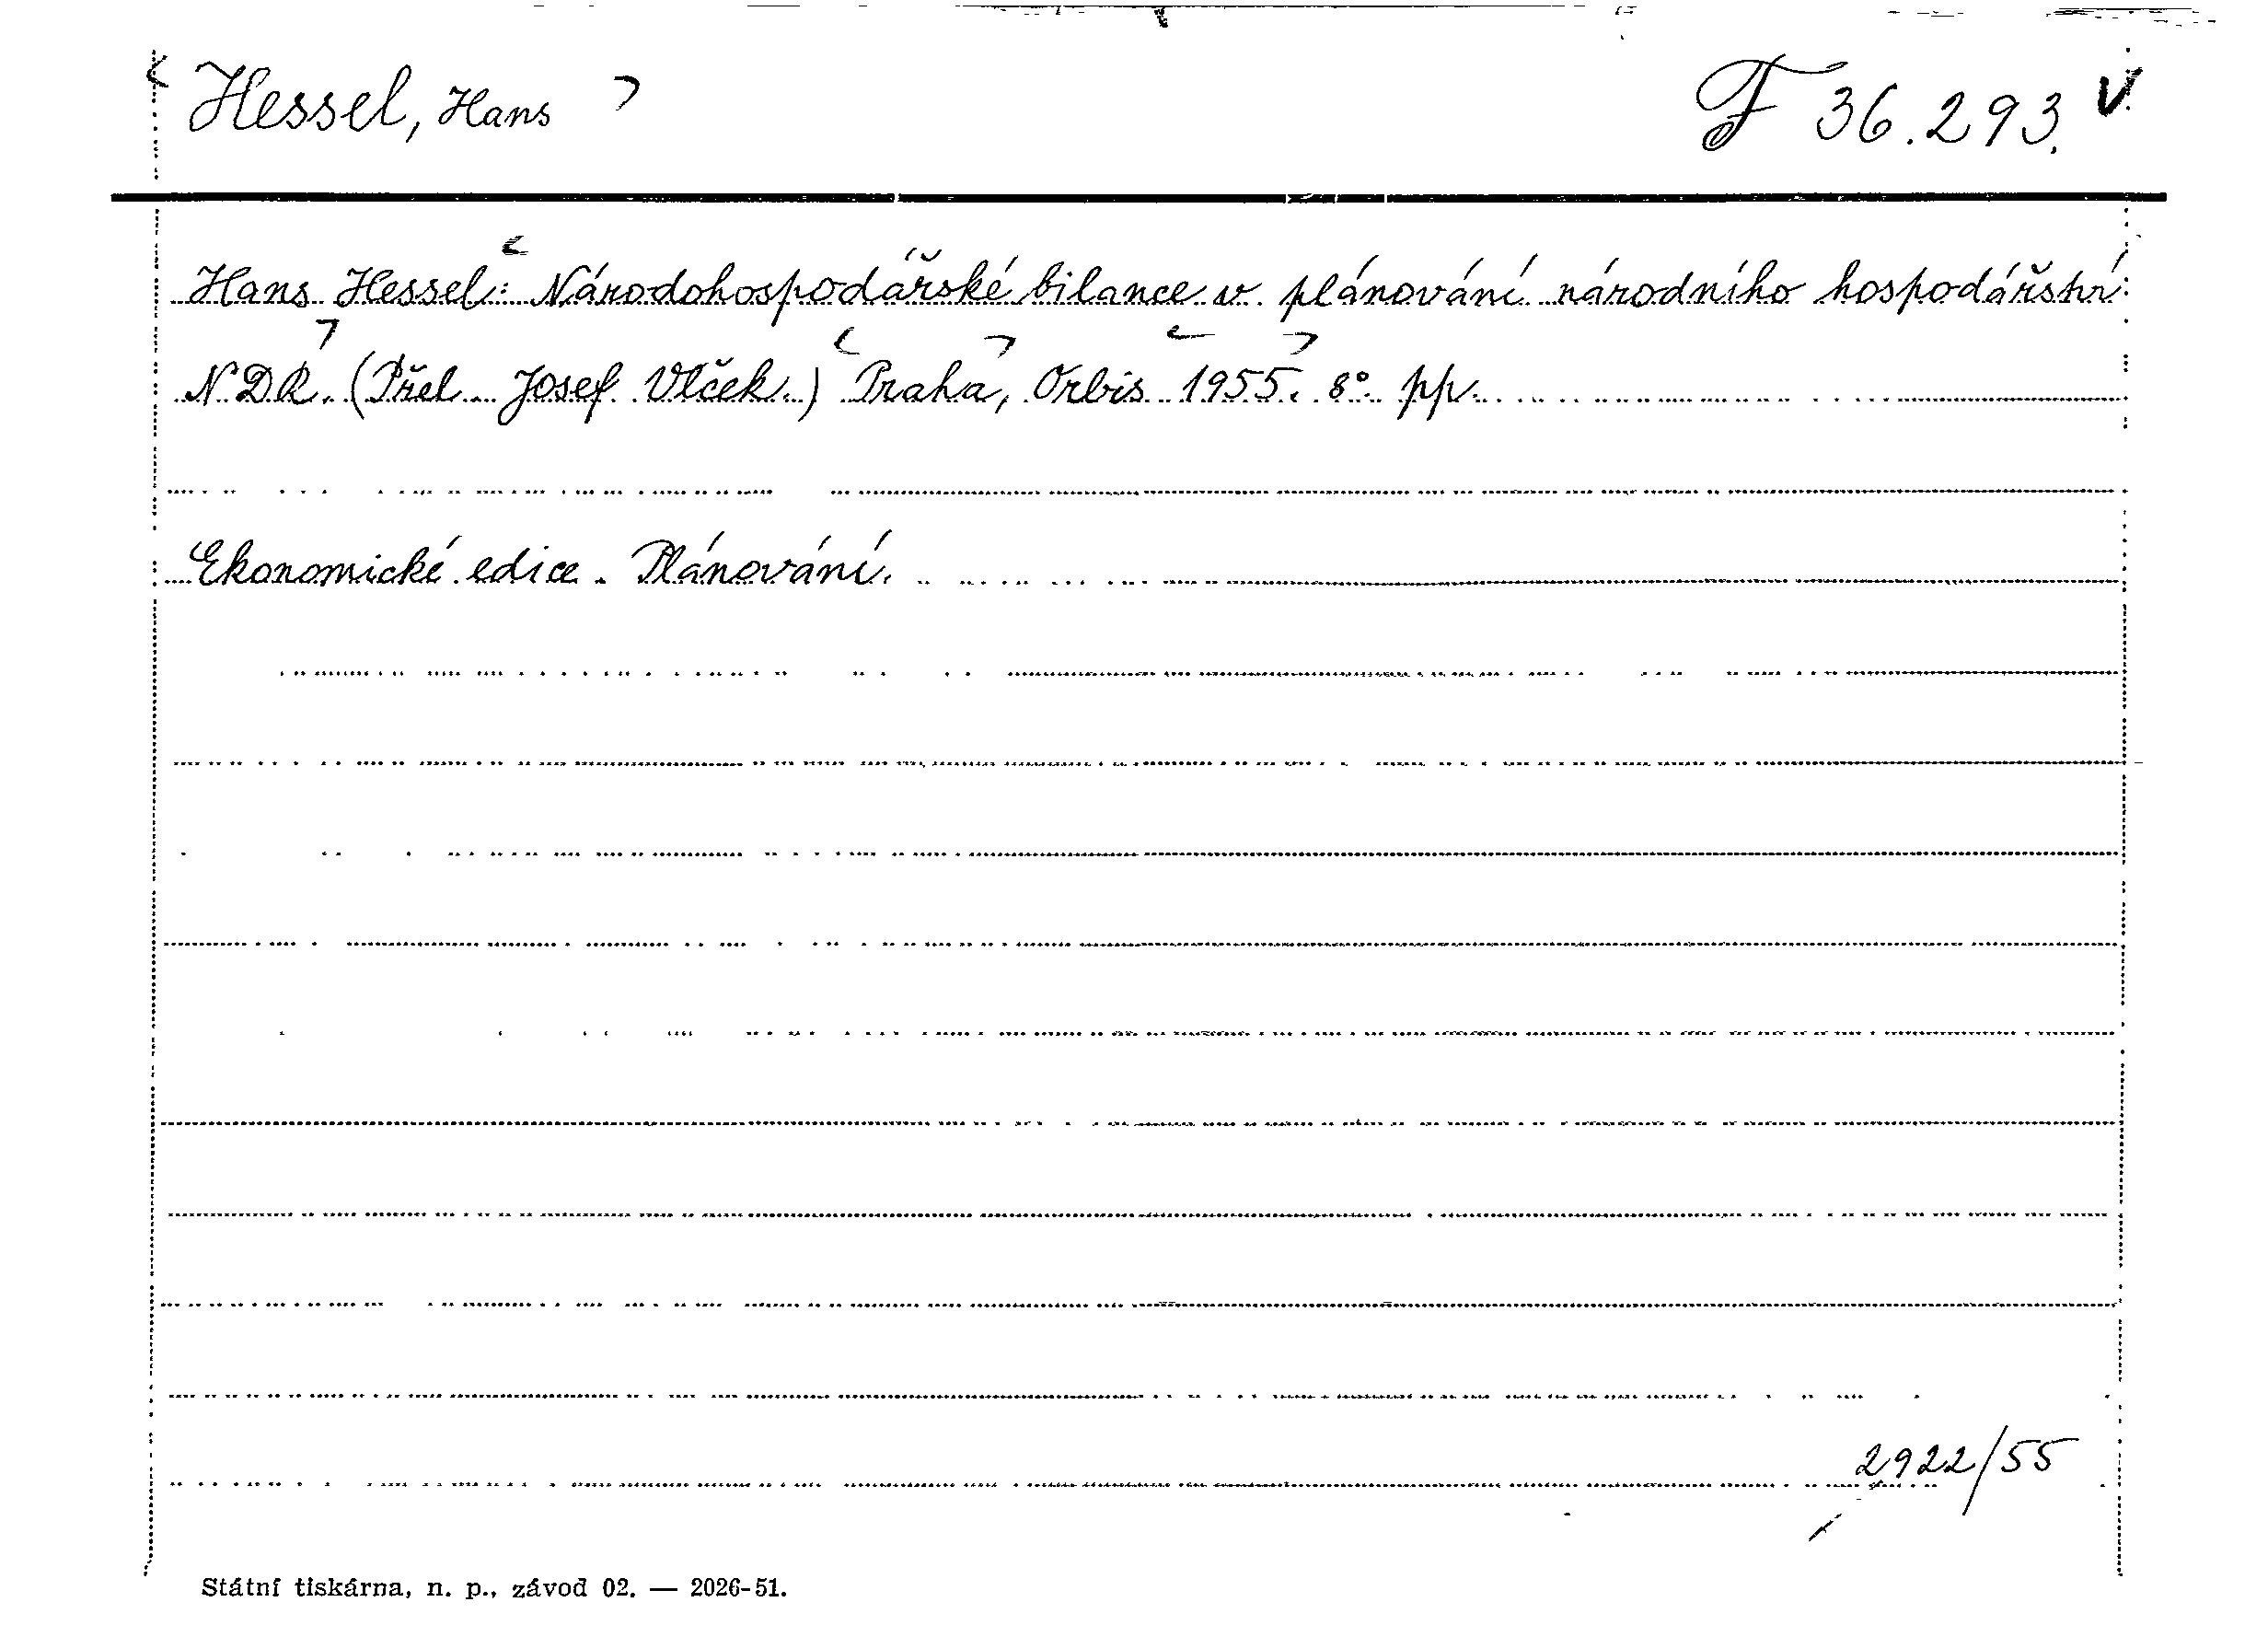 Hessel, Hans F 36.293.
Hans Hessel: Národohospodářské bilance v plánování národního hospodářství
NDR. (Přel. Josef Vlček.) Praha, Orbis 1955. 8° pp.
Ekonomické edice. Plánování.
2922/55
Státní tiskárna, n. p., závod 02. — 2026-51.